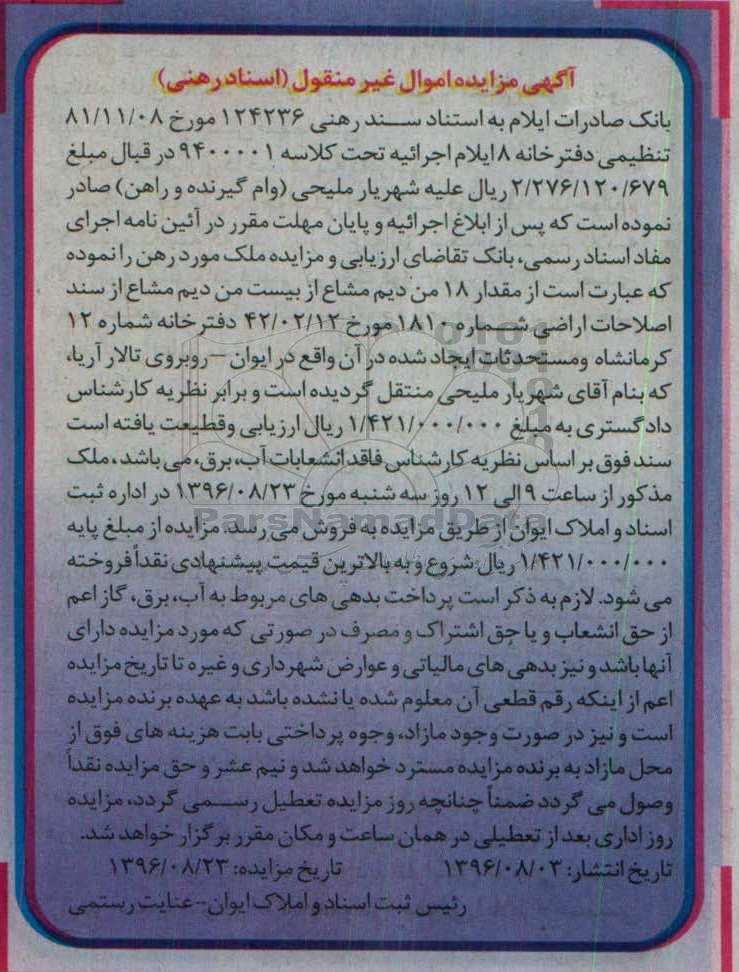 آگهی مزایده اموال غیر منقول (اسناد رهنی)
بانک صادرات ایلام به استناد سند رهنی ۱۲۴۲۳۶ مورخ ۸۱/۱۱/۰۸
تنظیمی دفترخانه ۸ ایلام اجرائیه تحت کلاسه ۹۴۰۰۰۰۱ در قبال مبلغ
۲/۲۷۶/۱۲۰/۶۷۹ ریال علیه شهریار ملیحی (وام گیرنده و راهن) صادر
نموده است که پس از ابلاغ اجرائیه و پایان مهلت مقرر در آئین نامه اجرای
مفاد اسناد رسمی، بانک تقاضای ارزیابی و مزایده ملک مورد رهن را نموده
که عبارت است از مقدار ۱۸ من دیم مشاع از بیست من دیم مشاع از سند
اصلاحات اراضی شماره ۱۸۱۰ مورخ ۴۲/۰۲/۱۲ دفترخانه شماره ۱۲
کرمانشاه ومستحدثات ایجاد شده در آن واقع در ایوان – روبروی تالار آریا،
که بنام آقای شهریار ملیحی منتقل گردیده است و برابر نظریه کارشناس
دادگستری به مبلغ ۱/۴۲۱/۰۰۰/۰۰۰ ریال ارزیابی وقطیعت یافته است
سند فوق بر اساس نظریه کارشناس فاقد انشعابات آب، برق، می باشد، ملک
مذکور از ساعت ۹ الی ۱۲ روز سه شنبه مورخ ۱۳۹۶/۰۸/۲۳ در اداره ثبت
اسناد و املاک ایوان از طریق مزایده به فروش می رسد. مزایده از مبلغ پایه
۱/۴۲۱/۰۰۰/۰۰۰ ریال شروع و به بالاترین قیمت پیشنهادی نقداً فروخته
می شود. لازم به ذکر است پرداخت بدهی های مربوط به آب، برق، گاز اعم
از حق انشعاب و یا حق اشتراک و مصرف در صورتی که مورد مزایده دارای
آنها باشد و نیز بدهی های مالیاتی و عوارض شهرداری و غیره تا تاریخ مزایده
اعم از اینکه رقم قطعی آن معلوم شده یا نشده باشد به عهده برنده مزایده
است و نیز در صورت وجود مازاد، وجوه پرداختی بابت هزینه های فوق از
محل مازاد به برنده مزایده مسترد خواهد شد و نیم عشر و حق مزایده نقداً
وصول می گردد ضمناً چنانچه روز مزایده تعطیل رسمی گردد، مزایده
روز اداری بعد از تعطیلی در همان ساعت و مکان مقرر برگزار خواهد شد.
تاریخ انتشار: ۱۳۹۶/۰۸/۰۳ تاریخ مزایده: ۱۳۹۶/۰۸/۲۳
رئیس ثبت اسناد و املاک ایوان- عنایت رستمی
ParsNamadData